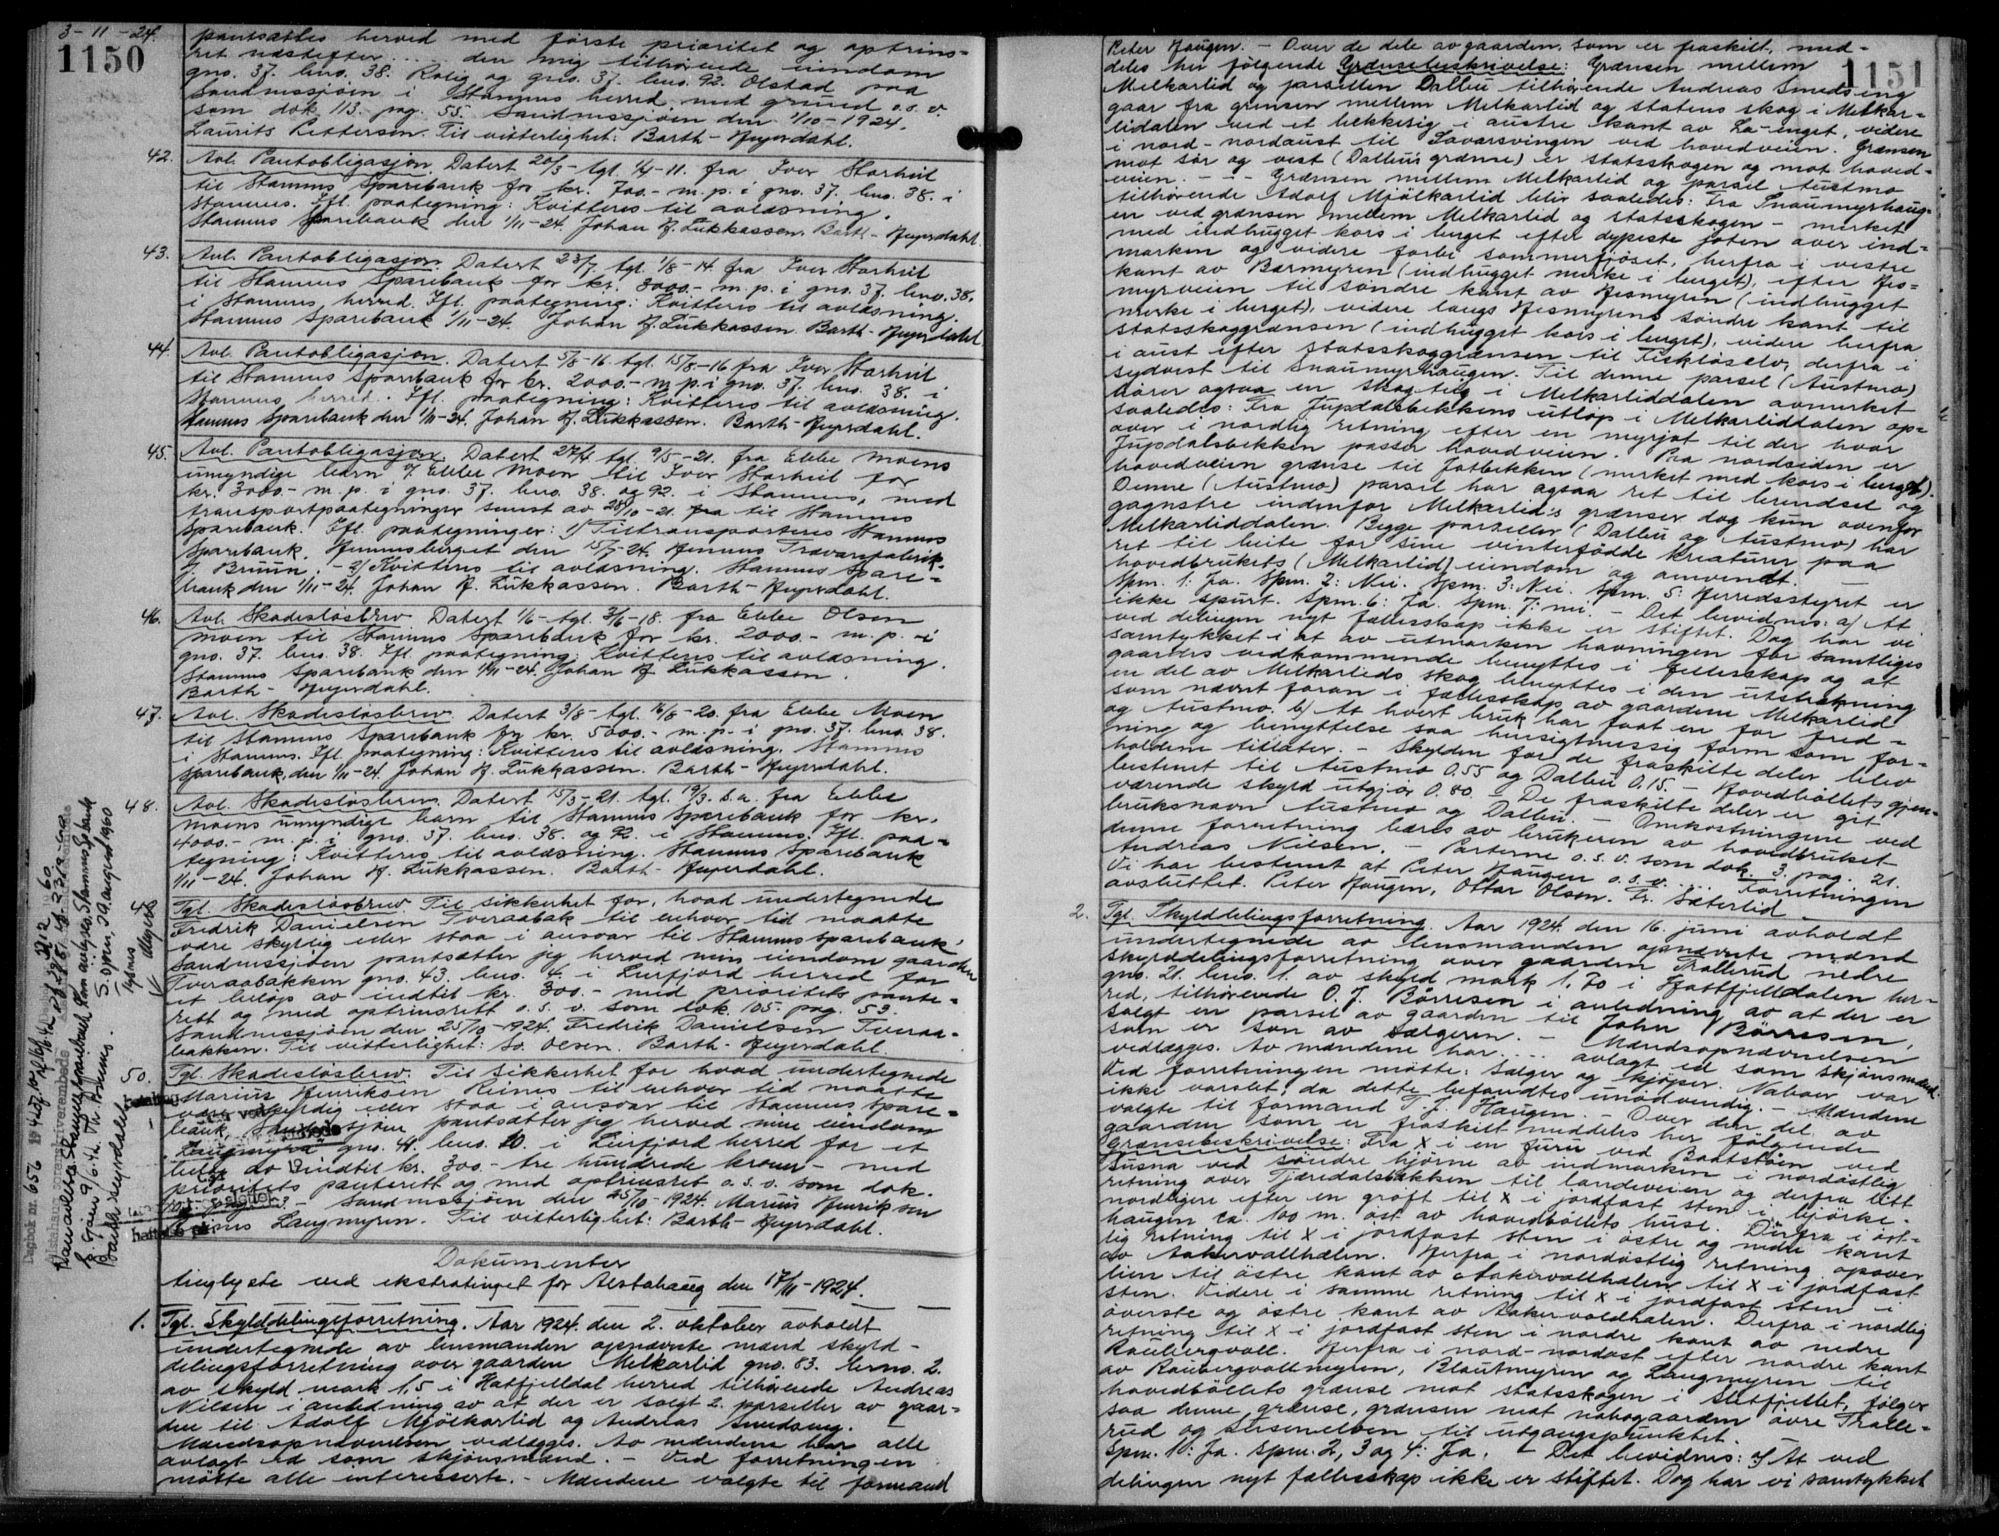 3-11-24.
1150
pantsættes herved med første prioritet og optrins-
ret næstefter ... den mig tilhørende eiendom
gno. 37. bno. 38. Rolig og gno. 37. bno. 92. Olstad paa
Sandnessjøen i Stamnes herred, med grund o.s.v.
som dok. 113. pag. 55. Sandnessjøen den 1/10-1924.
Laurits Pettersen. Til vitterlighet: Barth-Heyerdahl.
42. Avl. Pantobligasjon. Datert 20/3 tgl. 1/4-11. fra Iver Storhiil
til Stamnes Sparebank for kr. 700.- m.p. i gno. 37. bno. 38. i
Stamnes. Ifl. paategning: Kvitteres til avlæsning.
Stamnes Sparebank den 1/11-24. Johan H. Lukkassen. Barth-Heyerdahl.
43. Avl. Pantobligasjon. Datert 23/7 tgl. 1/8-14. fra Iver Storhiil
til Stamnes Sparebank for kr. 3000.- m.p. i gno. 37. bno. 38.
i Stamnes herred. Ifl. paategning: Kvitteres til avlæsning.
Stamnes Sparebank 1/11-24. Johan H. Lukkassen. Barth-Heyerdahl
44. Avl. Pantobligasjon. Datert 5/8-16 tgl. 15/8-16 fra Iver Storhiil
til Stamnes Sparebank for kr. 2000.- m.p. i gno. 37. bno. 38. i
Stamnes herred. Ifl. paategning: Kvitteres til avlæsning.
Stamnes Sparebank den 1/11-24. Johan H. Lukkassen. Barth-Heyerdahl.
45. Avl. Pantobligasjon. Datert 27/4 tgl. 9/5-21. fra Ebbe Moens
umyndige barn v/ Ebbe Moen til Iver Storhiil for
kr. 3000.- m.p. i gno. 37. bno. 38. og 92. i Stamnes, med
transportpaategninger senest av 28/10-21. fra til Stamnes
Sparebank. Ifl. paategninger: 1) Tiltransporteres Stamnes
Sparebank. Hemnesberget den 15/7-24. Hemnes Trævarefabrik.
J. Bruun. - 2) Kvitteres til avlæsning. Stamnes Spare-
bank den 1/11-24. Johan H. Lukkassen. Barth-Heyerdahl.
46. Avl. Skadesløsbrev. Datert 1/6 - tgl. 3/6-18. fra Ebbe Olsen
Moen til Stamnes Sparebank for kr. 2000.- m.p. i
gno. 37. bno. 38. Ifl. paategning: Kvitteres til avlæsning.
Stamnes Sparebank den 1/11-24. Johan H. Lukkassen.
Barth-Heyerdahl.
47. Avl. Skadesløsbrev. Datert 3/8- tgl. 16/8-20. fra Ebbe Moen
til Stamnes Sparebank for kr. 5000.- m.p. i gno. 37. bno. 38.
i Stamnes. Ifl. paategning: Kvitteres til avlæsning. Stamnes
Sparebank, den 1/11-24. Johan H. Lukkassen. Barth-Heyerdahl.
48. Avl. Skadesløsbrev. Datert 15/3-21. tgl. 19/3. s.a. fra Ebbe
Moens umyndige barn til Stamnes Sparebank for kr.
4000.- m.p. i gno. 37. bno. 38. og 92. i Stamnes. Ifl. paa-
tegning: Kvitteres til avlæsning. Stamnes Sparebank
1/11-24. Johan H. Lukkassen. Barth-Heyerdahl.
49. Tgl. Skadesløsbrev. Til sikkerhet for, hvad undertegnede
Fredrik Danielsen Tveraabak til enhver tid maatte
være skyldig eller staa i ansvar til Stamnes Sparebank,
Sandnessjøen pantsætter jeg herved min eiendom gaarden
Tveraabakken gno. 43. bno. 4. i Leirfjord herred for
et beløp av indtil kr. 300.- med prioritets pante-
rett og med optrinsrett o.s.v. som dok. 105. pag. 53.
Sandnessjøen den 25/10-1924. Fredrik Danielsen Tveraa-
bakken. Til vitterlighet: So. Olsen. Barth-Heyerdahl.
50. Tgl. Skadesløsbrev. Til sikkerhet for hvad undertegnede
Marius Henriksen Reines til enhver tid maatte
være skyldig eller staa i ansvar til Stamnes Spare-
bank, Sandnessjøen pantsætter jeg herved min eiendom
Langmyra gno. 41. bno. 10. i Leirfjord herred for et
beløp av indtil kr. 300.- tre hundrede kroner - med
prioritets panterett og med optrinsret o.s.v. som dok.
Sandnessjøen den 25/10-1924. Marius Henriksen
Reines Langmyren. Til vitterlighet: Barth-Heyerdahl.
Dokumenter
tinglyste ved ekstratinget for Alstahaug den 17/11-1924.
1. Tgl. Skylddelingsforretning. Aar 1924. den 2. oktober avholdt
undertegnede av lensmanden opnævnte mænd skyld-
delingsforretning over gaarden Melkarlid gno. 83. brno. 2.
av skyld mark 1,5 i Hatfjelldal herred tilhørende Andreas
Nilsen i anledning av at der er solgt 2. parseller av gaar-
den til Adolf Mjölkarlid og Andreas Smedseng. -
Mændsopnævnelsen vedlægges. Av mændene har alle
avlagt ed som skjønsmænd. - Ved forretningen
møtte alle interesserte. - Mændene valgte til formand
1151
Peter Haugen. - Over de dele av gaarden, som er fraskilt, med-
deles her følgende Grænsebeskrivelse: Grænsen mellem
Melkarlid og parsellen Dalbu tilhørende Andreas Smedseng
gaar fra grensen mellem Melkarlid og statens skog i Melkar-
lidalen ved et bekkesig i austre kant av La-enget, videre
i nord-nordaust til Lavarsvingen ved hovedveien. Grænsen
mot sør og vest (Dalbu's grænse) er statsskogen og mot hoved-
veien. - - Grænsen mellem Melkarlid og parsel Austmo
tilhørende Adolf Mjölkarlid blir saaledes: Fra Snaumyrhaug-
en ved grænsen mellem Melkarlid og statsskogen - merket
med indhugget kors i berget efter dypeste foten over ind-
marken og videre forbi sommerfjøset, herfra i vestre
kant av Barmyren (indhugget merke i berget), efter Hes-
myrveien til søndre kant av Hesmyren (indhugget
merke i berget), videre langs Hesmyrens søndre kant til
statsskoggrænsen (indhugget kors i berget), videre herfra
i aust efter statsskoggrænsen til Fiskløselv, derfra i
sydvest til Snaumyrhaugen. Til denne parsel (Austmo)
hører ogsaa en skogteig i Melkarliddalen avmerket
saaledes: Fra Jupdalsbekkens utløp i Melkarliddalen op-
over i nordlig retning efter en myrjot til der hvor
Jupdalsbekken passer hovedveien. Paa nordsiden er
hovedveien grænse til Jotbekken (merket med kors i berget).
Denne (Austmo) parsel har ogsaa ret til brendsel og
gagnstre indenfor Melkarlid's grænser dog kun ovenfor
Melkarliddalen. Begge parseller (Dalbu og Austmo) har
ret til beite for sine vinterfødde kreaturer paa
hovedbrukets (Melkarlid) eiendom og omvendt. -
Spm. 1: Ja. Spm. 2: Nei. Spm. 3: Nei. Spm. 5: Herredsstyret er
ikke spurt. Spm. 6: Ja. Spm. 7: nei. - Det bevidnes: a) At
ved delingen nyt fællesskap ikke er stiftet. Dog har vi
samtykket i at av utmarken havningen for samtlige
gaardes vedkommende benyttes i fellesskap og at
en del av Melkarlids skog benyttes i den utstrekning
som nævnt foran i fællesskap av gaardene Melkarlid
og Austmo. b) At hvert bruk har faat en for fred-
ning og benyttelse saa hensigtmessig form som for-
holdene tillater. - Skylden for de fraskilte deler blev
bestemt til Austmo 0.55 og Dalbu 0.15. - Hovedbøllets gjen-
værende skyld utgjør 0.80. - De fraskilte deler er git
bruksnavn Austmo og Dalbu. - Omkostningene ved
denne forretning bæres av brukeren av hovedbruket
Andreas Nilsen. - Parterne o.s.v. som dok. 3. pag. 21.
Vi har bestemt at Peter Haugen o.s.v. ... Forretningen
avsluttet. Peter Haugen, Ottar Olsen. Fr. Sæterlid.
2. Tgl. Skylddelingsforretning. Aar 1924. den 16. juni avholdt
undertegnede av lensmanden opnævnte mænd
skyrddelingsforretning over gaarden Trallerud nedre
gno. 21. bno. 1. av skyld mark 1,70 i Hattfjelldalen her-
red, tilhørende O. J. Börresen i anledning av at der er
solgt en parsel av gaarden til John Börresen,
som er søn av sælgeren. - Mændsopnævnelsen
vedlægges. Av mændene har ... avlagt ed som skjønsmænd.
Ved forretningen møtte: Sælger og kjøper. Naboer var
ikke varslet, da dette befandtes unødvendig. - Mændene
valgte til formand T. J. Haugen. - Over den del av
gaarden som er fraskilt meddeles her følgende
Grænsebeskrivelse: Fra X i en furu ved Baatstøen ved
Susna ved søndre hjørne av indmarken i nordøstlig
retning over Tjæredalsbakken til landeveien og derfra litt
nordligere efter en grøft til X i jordfast sten i bjørke-
haugen ca. 100 m. øst av hovedbøllets huse. Derfra i øst-
lig retning til X i jordfast sten i østre og nedre kant
av Aakervallhælen. Herfra i nordøstlig retning opover
lien til østre kant av Aakervallhalen til X i jordfast
sten. Videre i samme retning til X i jordfast sten i
øverste og østre kant av Aakervoldhalen. Derfra i nordlig
retning til X i jordfast sten i nordre kant av nedre
Raubergvoll. Herfra i nord-nordøst efter nordre kant
av Raubergvollmyren, Blautmyren og Langmyren til
hovedbøllets grænse mot statsskogen i Sletfjellet, følger
saa denne grænse, grænsen mot nabogaarden øvre Tralle-
rud og Susnaelven til utgangspunktet. -
Spm. 1: Ja. Spm. 2, 3 og 4: Ja. - Det bevidnes: a) At ved
delingen nyt fællesskap ikke er stiftet. Dog har vi samtykket